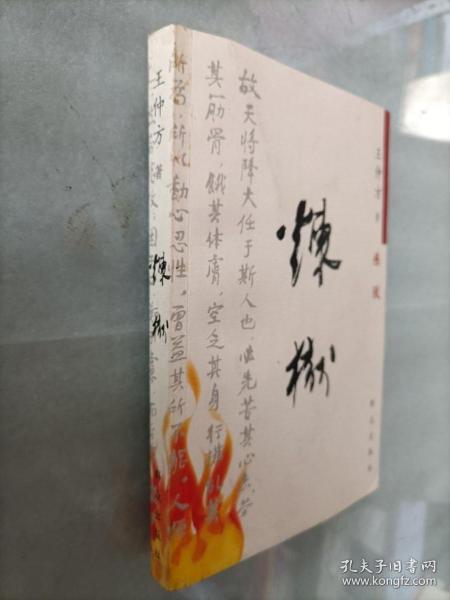 故天将降大任于斯人也,必先苦其心志,劳
其筋骨,饿其体肤,空乏其身,行拂乱其
所为,所以动心忍性,曾益其所不能。人恒
王仲方 著
炼狱
群众出版社
炼狱
王仲方 著
炼狱
群众出版社
孔夫子旧书网
www.kongfz.com